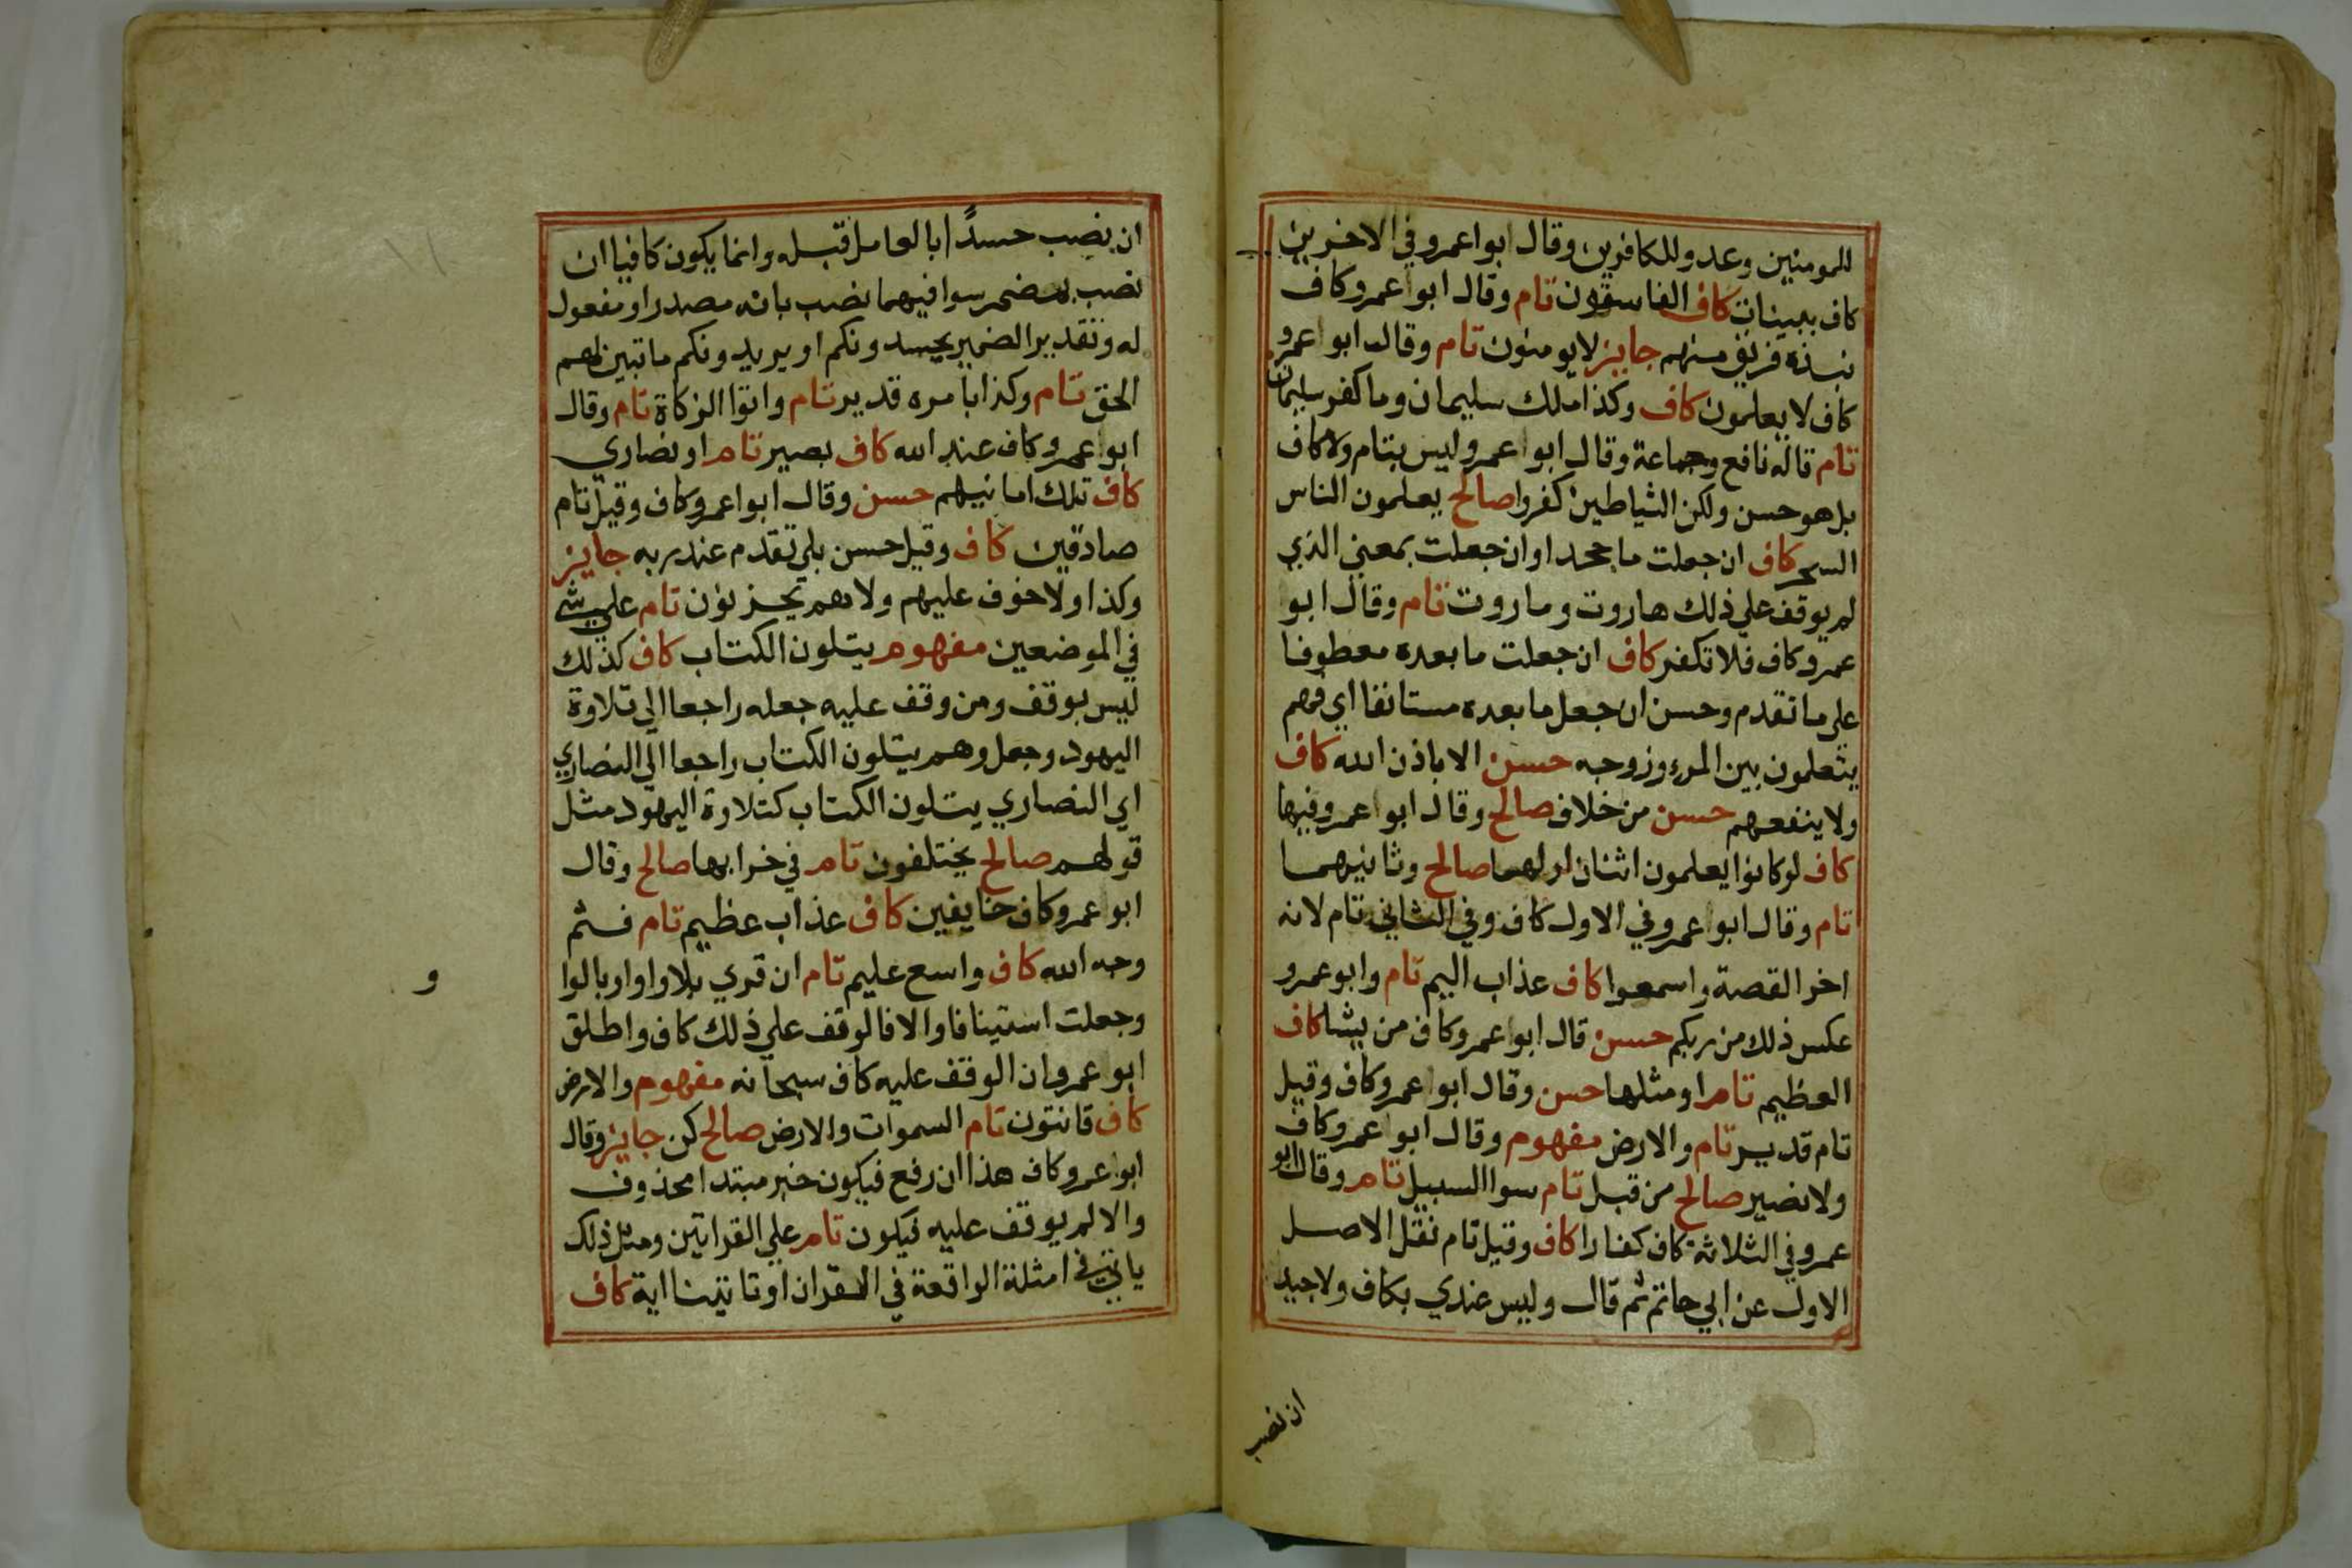 للمومنين وعدو للكافرين وقال ابوا عمرو في الاخرين
كاف بينات كاف الفاسقون تام وقال ابوا عمرو كاف
نبذه فريق منهم جايز لايومنون تام وقال ابوا عمرو
كاف لا يعلمون كاف وكذا ملك سليمان وما كفر سليمان
تام قاله نافع وجماعة وقال ابوا عمرو ليس بتام ولا كاف
بل هو حسن ولكن الشياطين كفروا صالح يعلمون الناس
السحر كاف ان جعلت ما جحدا وان جعلت بمعني الذي
لم يوقف علي ذلك هاروت وماروت تام وقال ابو
عمرو كاف فلا تكفر كاف ان جعلت ما بعده معطوفا
علي ما تقدم وحسن ان جعل ما بعده مستانفا اي فهم
يتعلمون بين المرء وزوجه حسن الا باذن الله كاف
ولا ينفعهم حسن من خلاف صالح وقال ابوا عمرو فيها
كاف لو كانوا يعلمون اثنان اولهما صالح وثانيهما
تام وقال ابوا عمرو في الاول كاف وفي الثاني تام لانه
اخر القصة واسمعوا كاف عذاب اليم تام وابو عمرو
عكس ذلك من ربكم حسن قال ابوا عمرو كاف من يشا كاف
العظيم تام او مثلها حسن وقال ابوا عمرو كاف وقيل
تام قدير تام والارض مفهوم وقال ابوا عمرو كاف
ولا نصير صالح من قبل تام سوا السبيل تام وقال ابو
عمرو في الثلاثة كاف كفارا كاف وقيل تام نقل الاصل
الاول عن ابي حاتم ثم قال وليس عندي بكاف ولا جيد
ان نصب
ان نصب حسدًا بالعامل قبله وانما يكون كافيا ان
نصب بمضمر سوا فيهما نصب بانه مصدر او مفعول
له وتقدير الضمير يحسدونكم او يريدونكم ما تبين لهم
الحق تام وكذا بامره قدير تام واتوا الزكاة تام وقال
ابوا عمرو كاف عند الله كاف بصير تام او نصاري
كاف تلك امانيهم حسن وقال ابوا عمرو كاف وقيل تام
صادقين كاف وقيل حسن بلي تقدم عند ربه جايز
وكذا ولا خوف عليهم ولا هم يحزنون تام علي شي
في الموضعين مفهوم يتلون الكتاب كاف كذلك
ليس بوقف ومن وقف عليه جعله راجعا الي تلاوة
اليهود وجعل وهم يتلون الكتاب راجعا الي النصاري
اي النصاري يتلون الكتاب كتلاوة اليهود مثل
قولهم صالح يختلفون تام في خرابها صالح وقال
ابوا عمرو كاف خايفين كاف عذاب عظيم تام فثم
وجه الله كاف واسع عليم تام ان قري بلا واو او بالوا
و
وجعلت استينافا والا فالوقف علي ذلك كاف واطلق
ابوا عمرو ان الوقف عليه كاف سبحانه مفهوم والارض
كاف قانتون تام السموات والارض صالح كن جايز وقال
ابوا عمرو كاف هذا ان رفع فيكون خبر مبتدا محذوف
والا لم يوقف عليه فيكون تام علي القراتين ومثل ذلك
ياتي في امثلة الواقعة في القران او تاتينا اية كاف